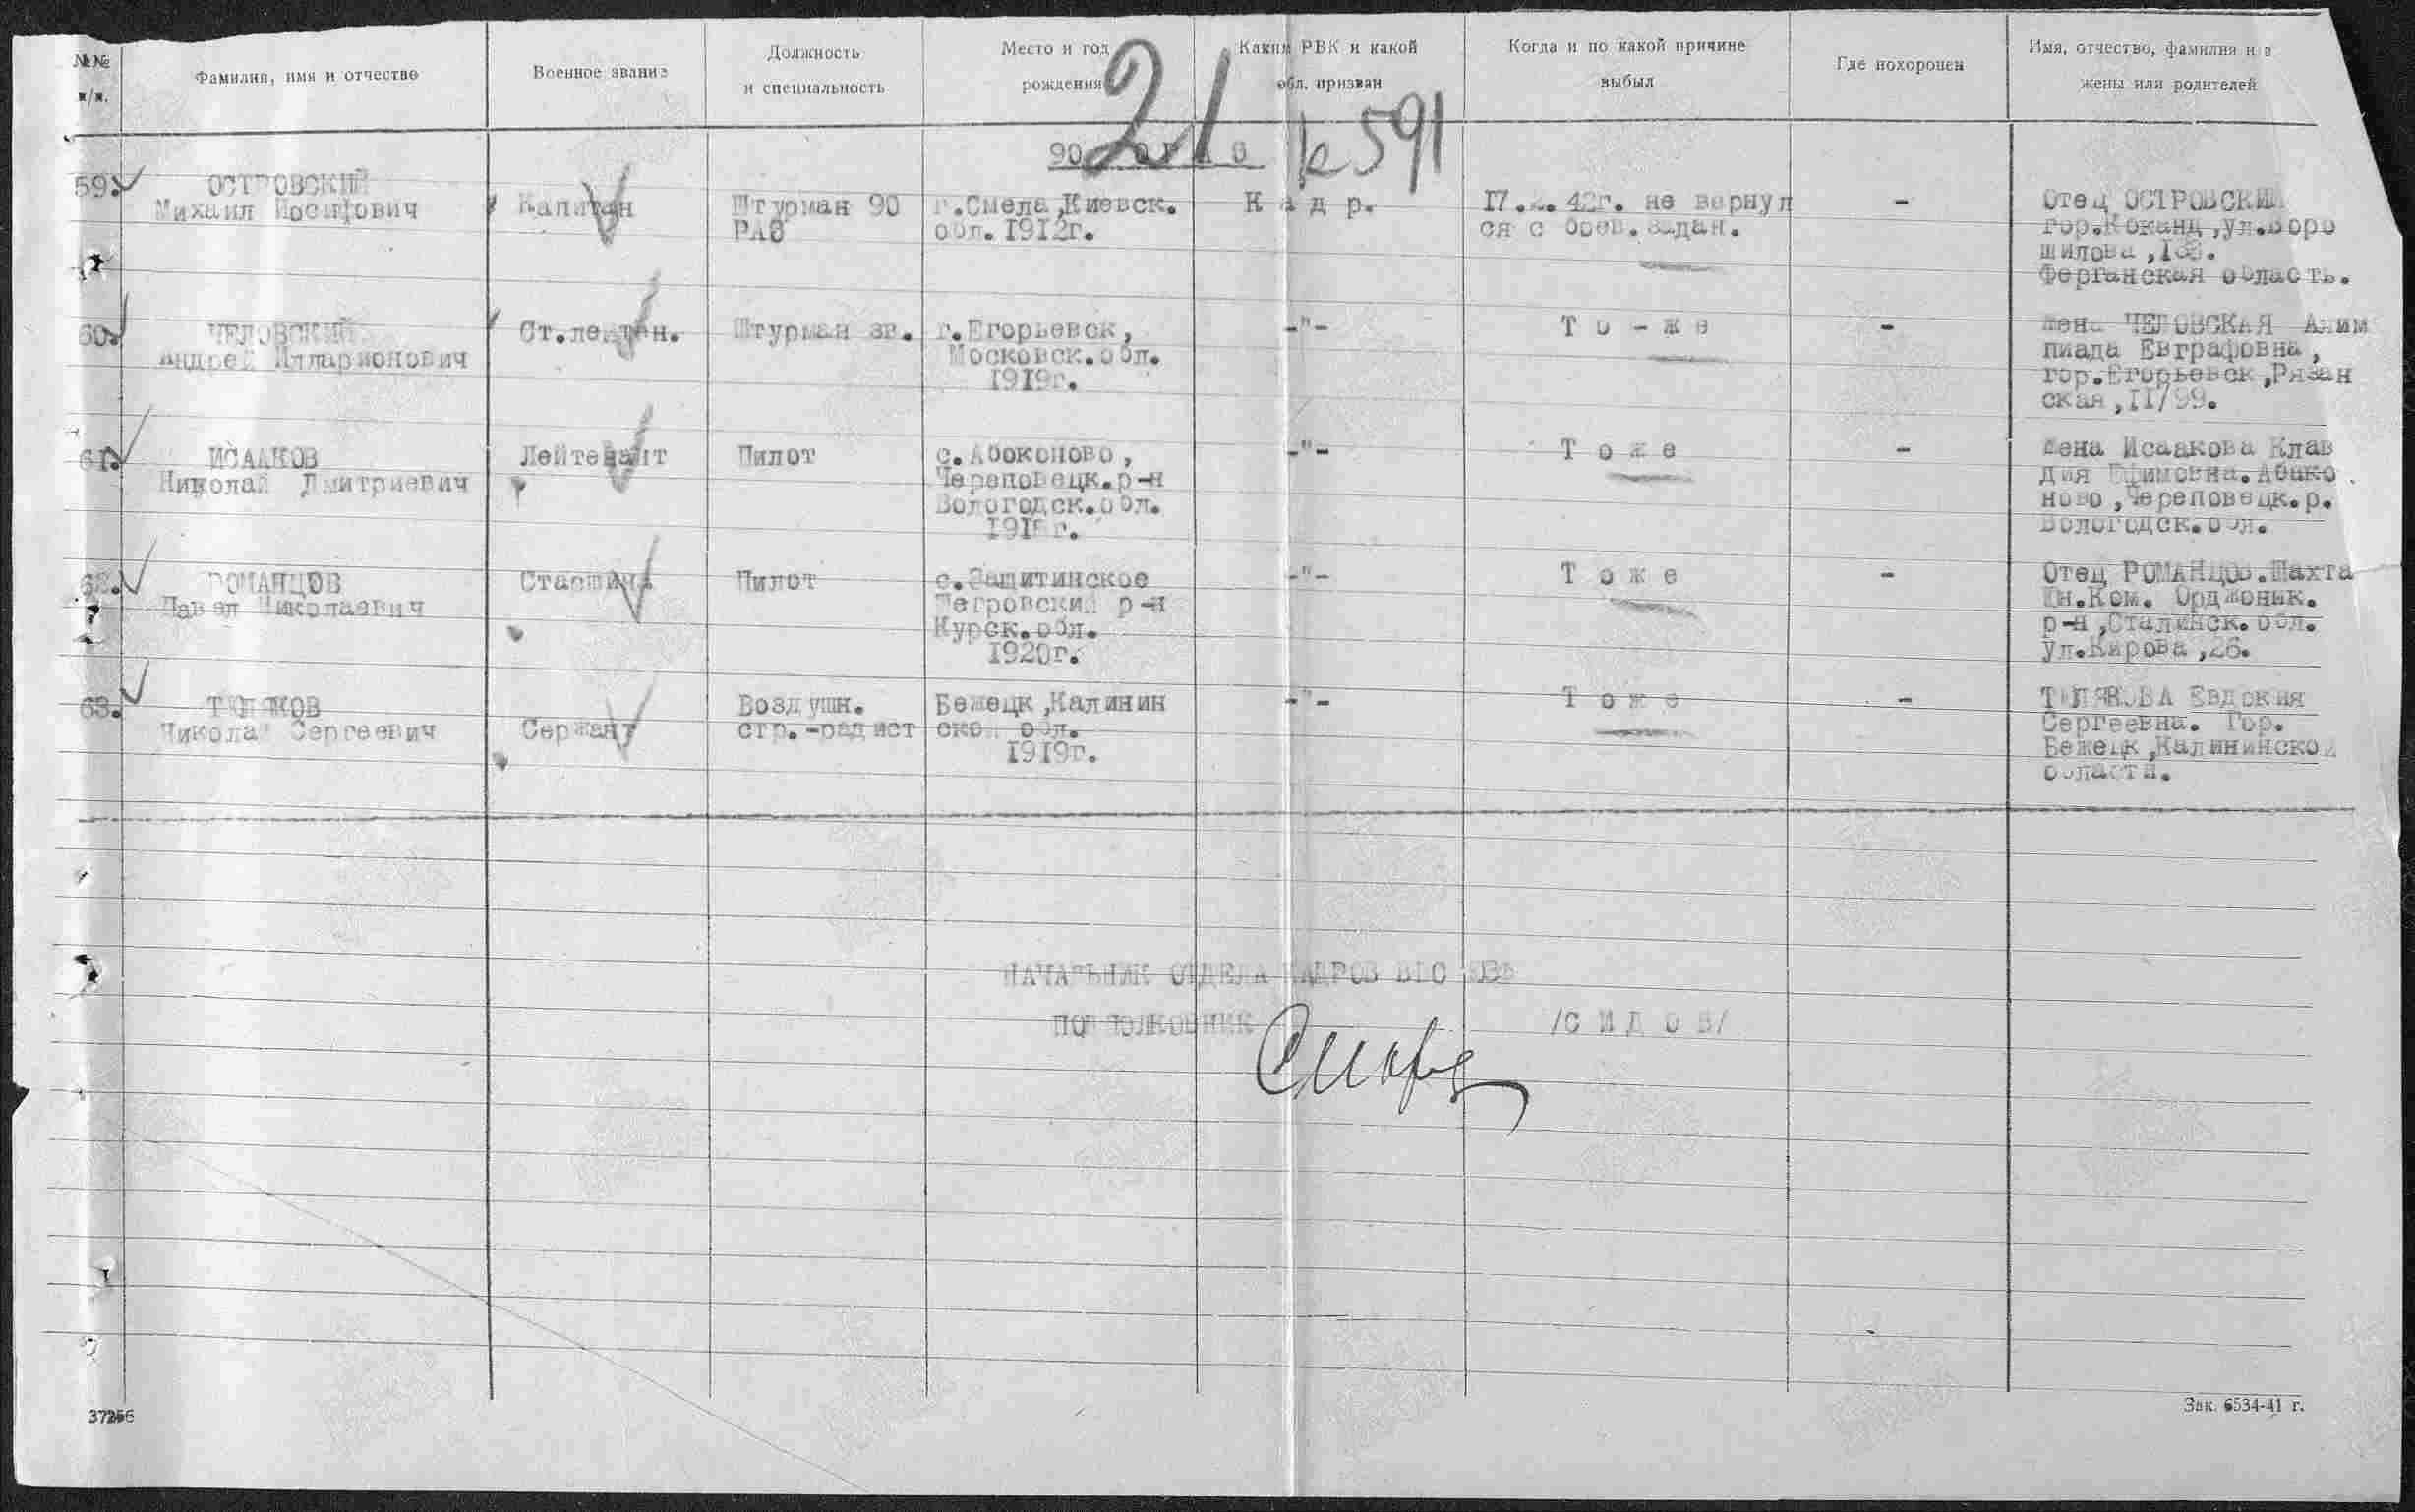 №№
п/п.
Фамилия, имя и отчество
Военное звание
Должность
и специальность
Место и год
рождения
Каким РВК и какой
обл. призван
Когда и по какой причине
выбыл
Где похоронен
Имя, отчество, фамилия
жены или родителей
21
к 591
90
59.
ОСТРОВСКИЙ
Михаил Иосифович
Капитан
Штурман 90
РАБ
г.Смела,Киевск.
обл. 1912г.
К а д р.
17.2.42г. не вернул
ся с боев.задан.
-
Отец ОСТРОВСКИЙ
гор.Коканд,ул.Воро
шилова,
Ферганская область.
60.
ЧЕЛОВСКИЙ
Андрей Илларионович
Ст.лейтен.
Штурман зв.
г.Егорьевск,
Московск.обл.
1919г.
-"-
Т о - ж е
-
Жена ЧЕЛОВСКАЯ Алим
пиада Евграфовна,
гор.Егорьевск,Рязан
ская,11/99.
61.
ИСААКОВ
Николай Дмитриевич
Лейтенант
Пилот
с.Абоконово,
Череповецк.р-н
Вологодск.обл.
-"-
Т о ж е
-
Жена Исаакова Клав
дия Ефимовна.Абако
ново,Череповецк.р.
Вологодск.обл.
62.
РОМАНЦОВ
Павел Николаевич
Старшина
Пилот
с.Защитинское
Петровский р-н
Курск.обл.
1920г.
-"-
Т о ж е
-
Отец РОМАНЦОВ.Шахта
Юн.Ком. Орджоник.
р-н,Сталинск.обл.
ул.Кирова,26.
63.
ТЮЛЯКОВ
Николай Сергеевич
Сержант
Воздушн.
стр.-радист
Бежецк,Калинин
ской обл.
1919г.
-"-
Т о ж е
-
ТЮЛЯКОВА Евдокия
Сергеевна. Гор.
Бежецк,Калининской
области.
НАЧАЛЬНИК ОТДЕЛА КАДРОВ ВВС
ПОДПОЛКОВНИК
/С И Д О В/
Зак. 6534-41 г.